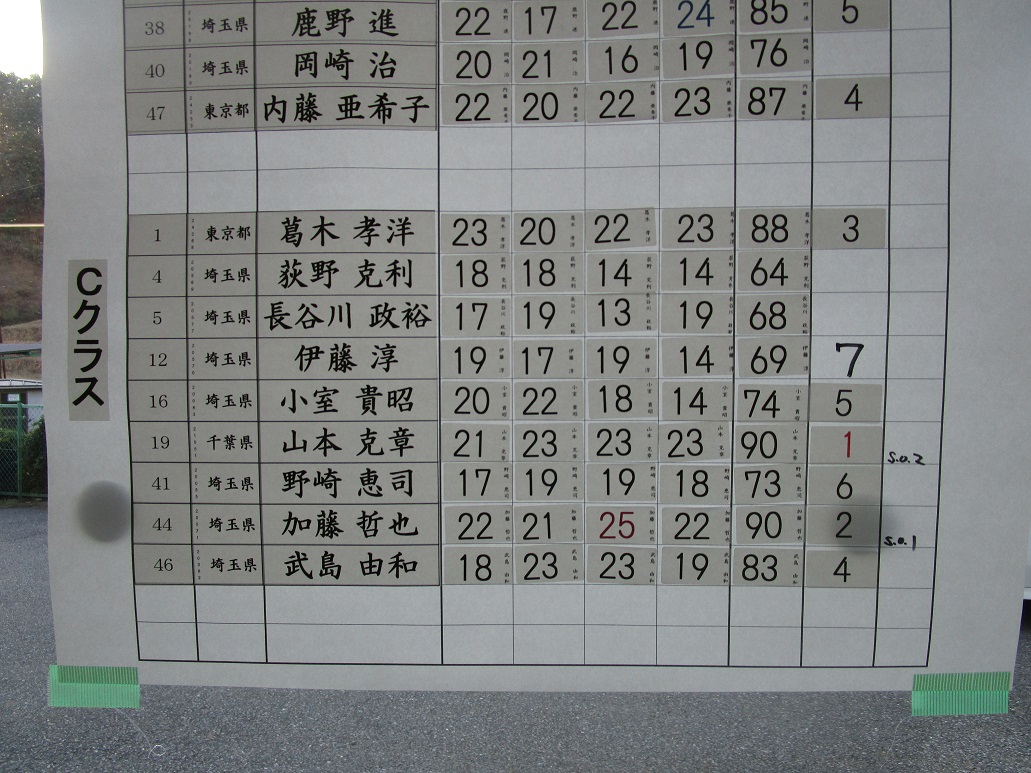 38 埼玉県 鹿野 進 22 17 22 24 85 5
40 埼玉県 岡崎 治 20 21 16 19 76
47 東京都 内藤 亜希子 22 20 22 23 87 4
Cクラス
1 東京都 葛木 孝洋 23 20 22 23 88 3
4 埼玉県 荻野 克利 18 18 14 14 64
5 埼玉県 長谷川 政裕 17 19 13 19 68
12 埼玉県 伊藤 淳 19 17 19 14 69 7
16 埼玉県 小室 貴昭 20 22 18 14 74 5
19 千葉県 山本 克章 21 23 23 23 90 1 S.O.2
41 埼玉県 野崎 恵司 17 19 19 18 73 6
44 埼玉県 加藤 哲也 22 21 25 22 90 2 S.O.1
46 埼玉県 武島 由和 18 23 23 19 83 4